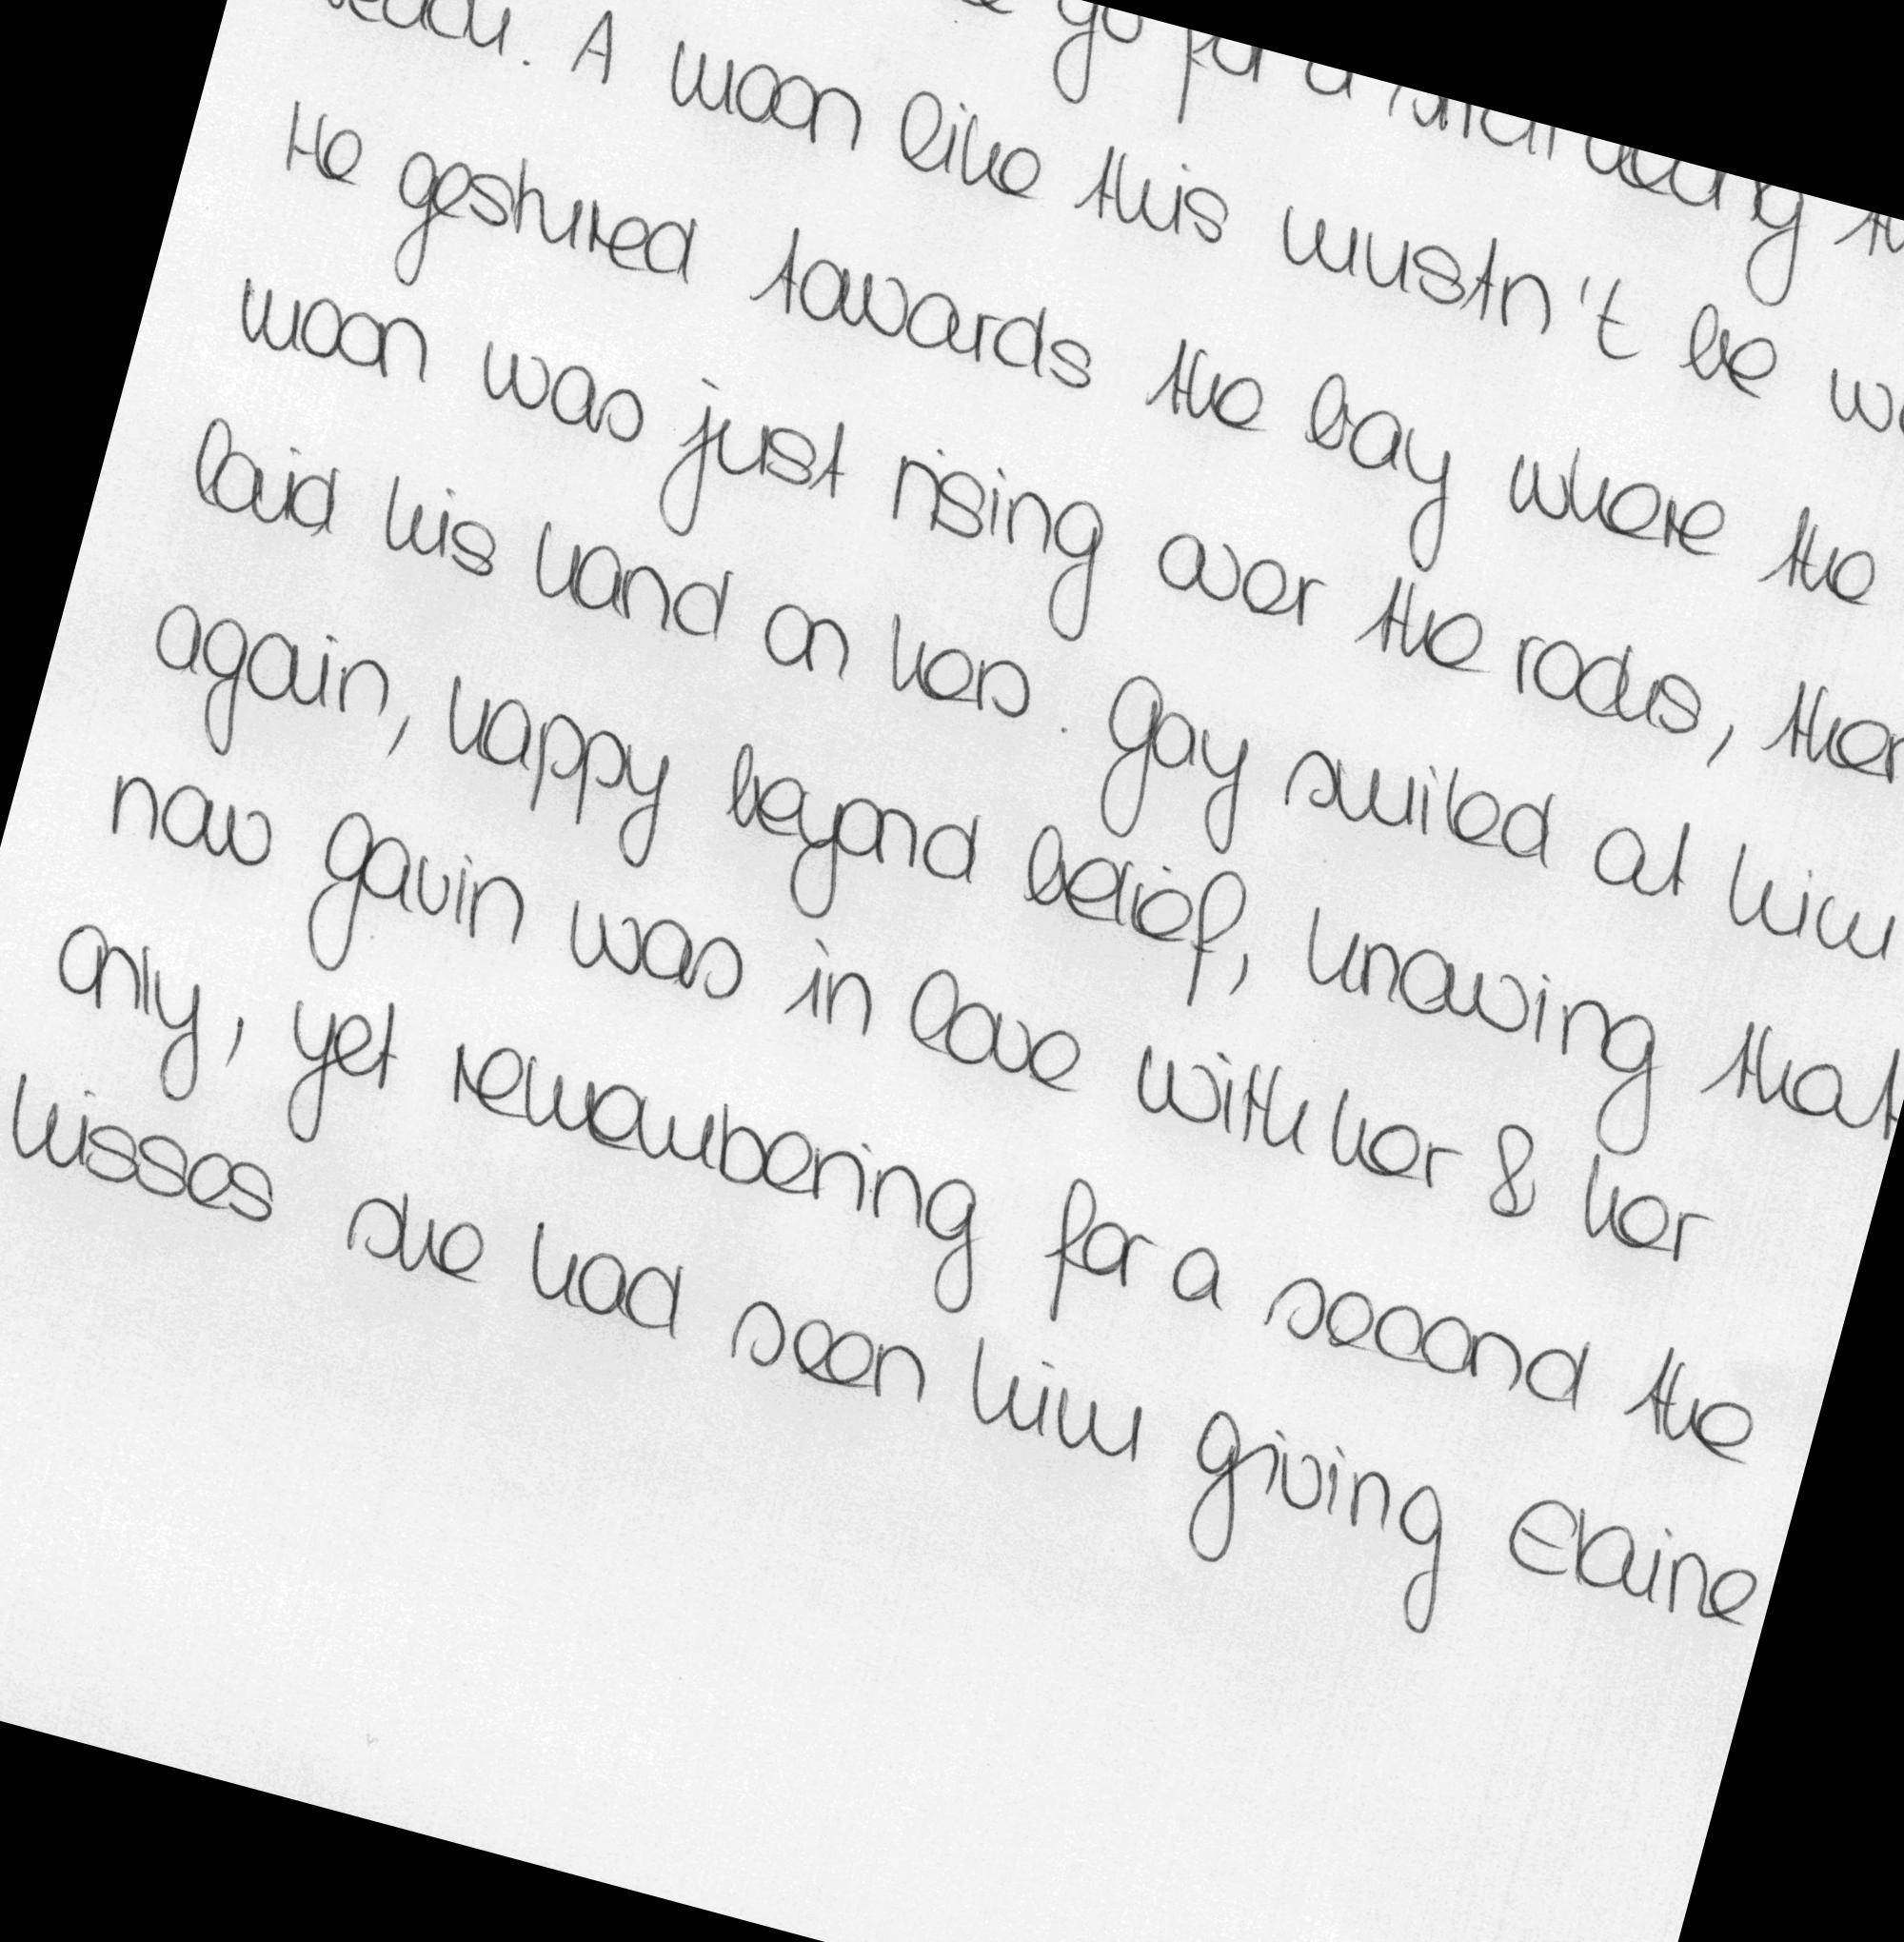 go for a along
A moon like this mustn't be
He gestured towards the bay where the
moon was just rising over the rocks, then
laid his hand on hers. Gay smiled at him
again, happy beyond belief, knowing that
now Gavin was in love with her & her
only, yet remembering for a second the
kisses she had seen him giving Elaine